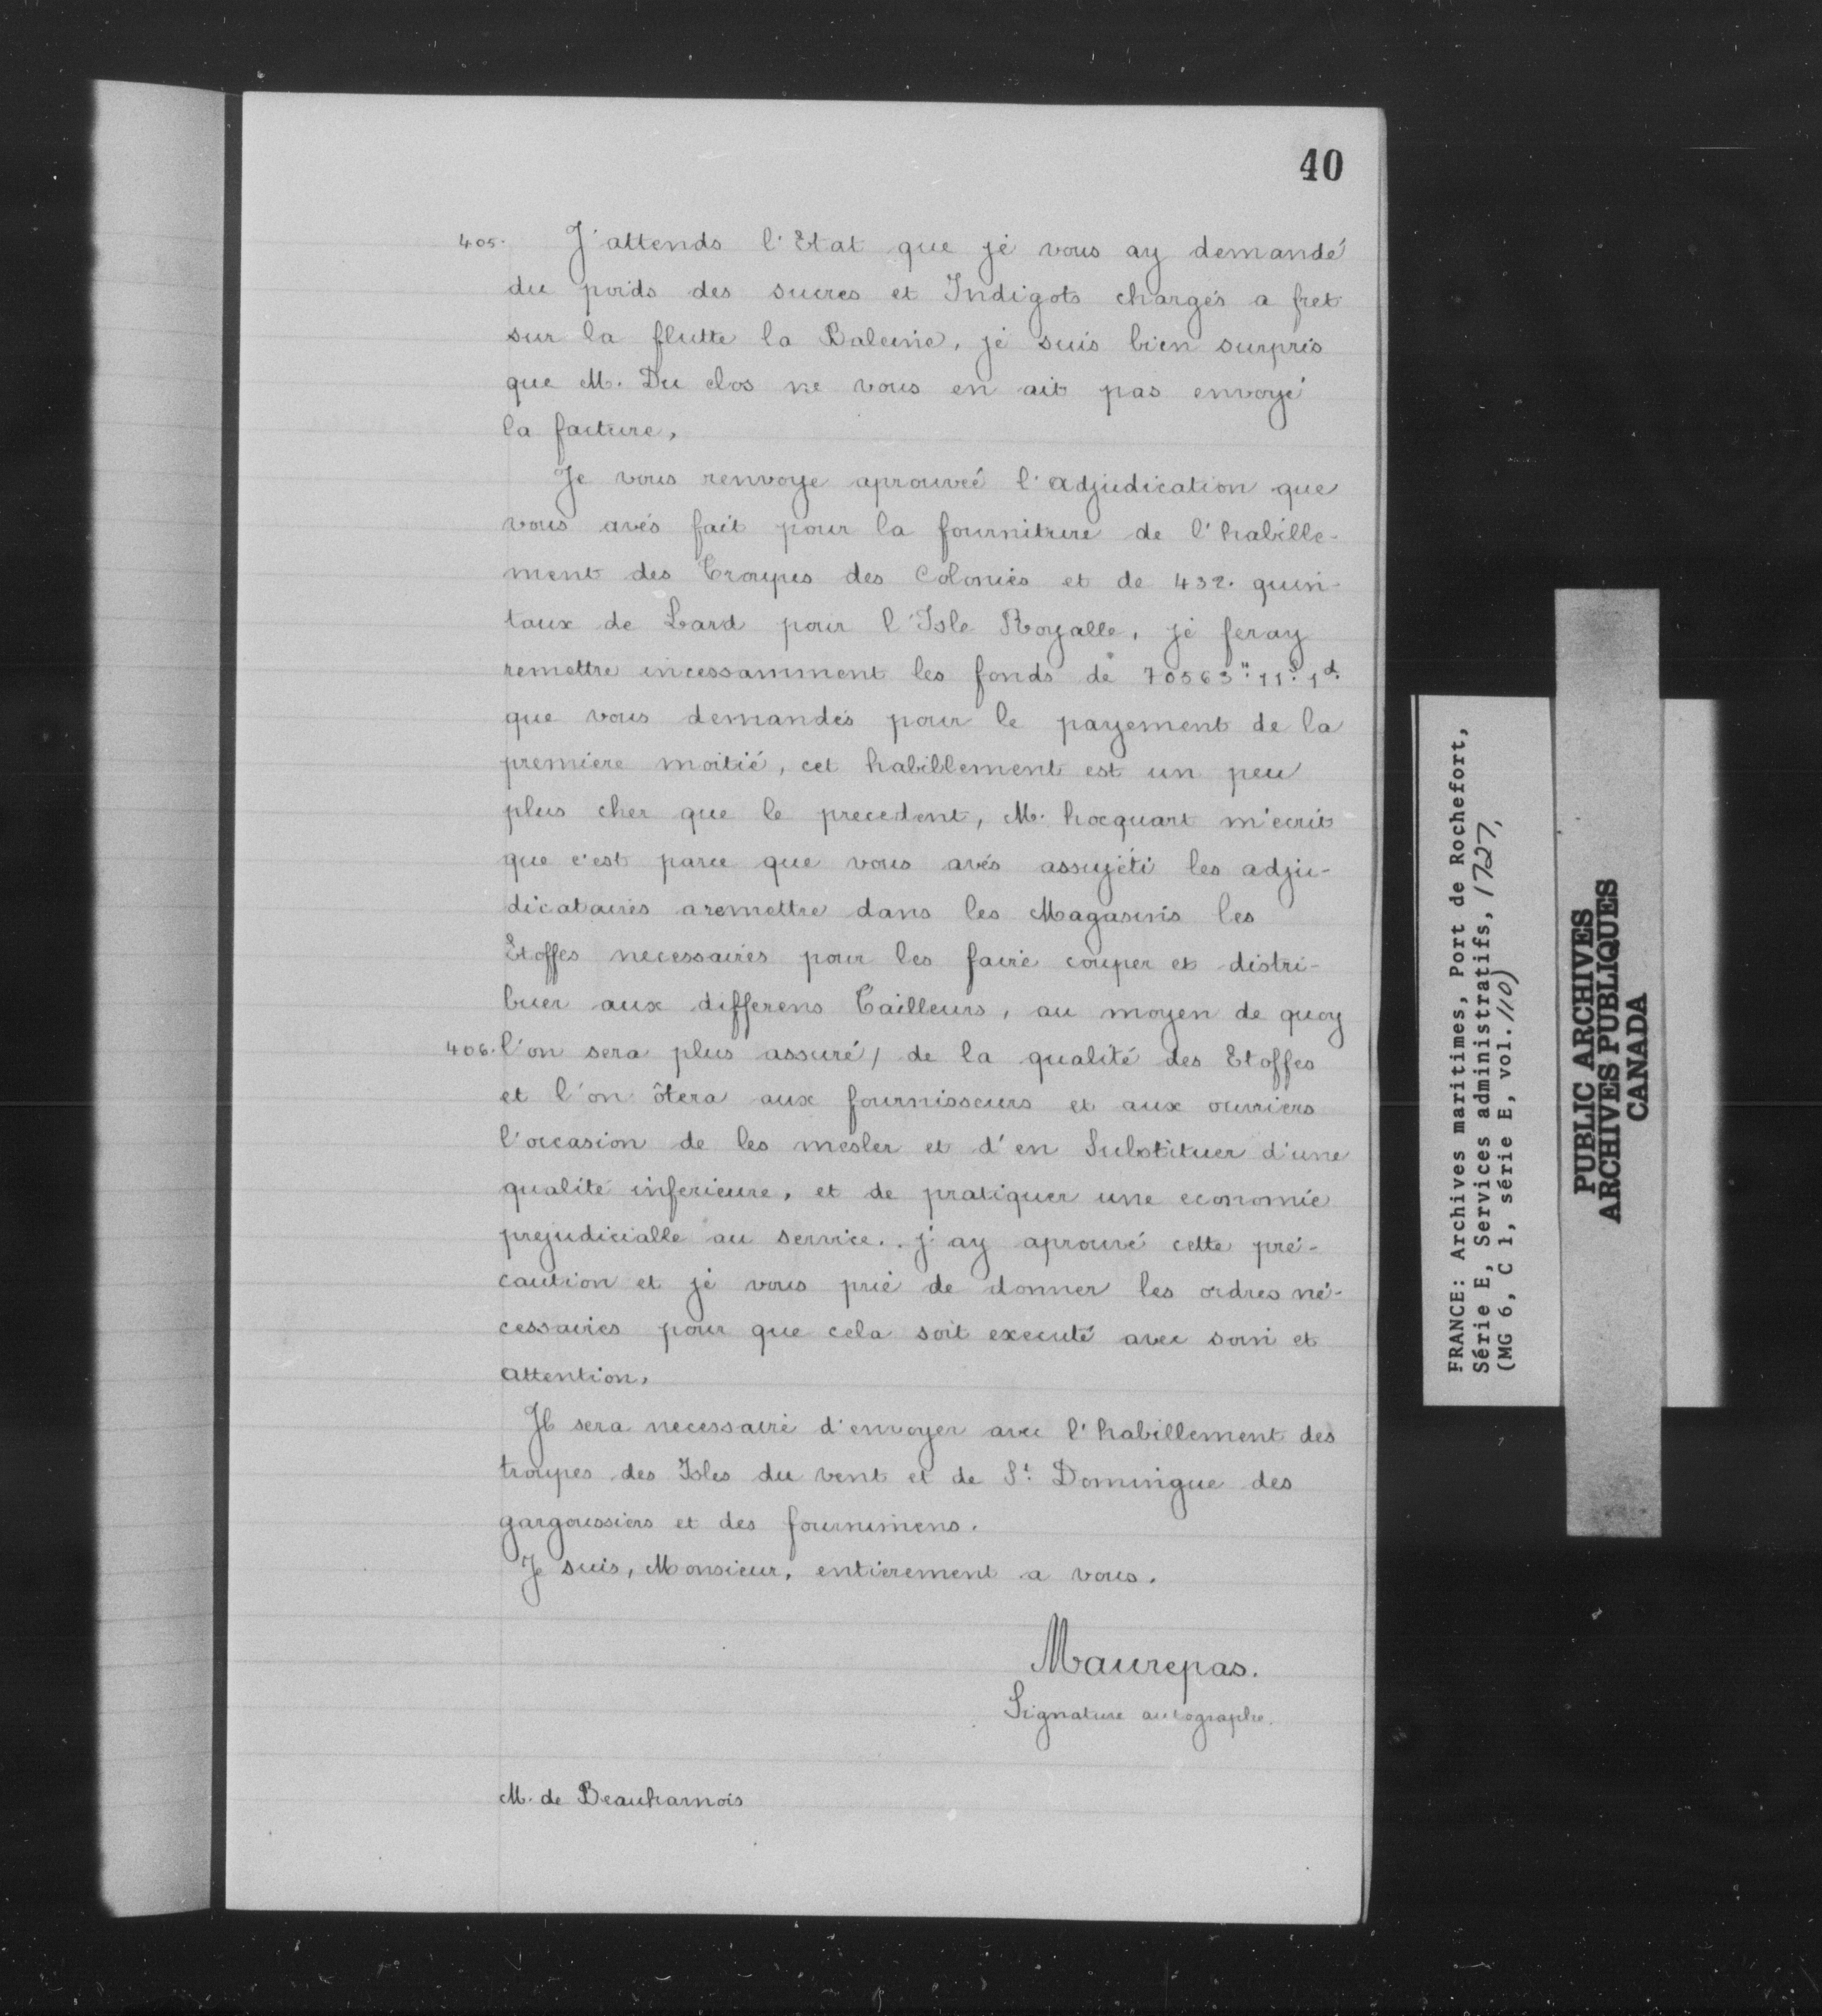 40
405. J'attends l'Etat que je vous ay demandé
du poids des sucres et Indigots chargés a fret
sur la flutte la Baleine, je suis bien surpris
que M. Du clos ne vous en ait pas envoyé
la facture,
Je vous renvoye aprouvée l'adjudication que
vous avés fait pour la fourniture de l'habille-
ment des Troupes des Colonies et de 432. quin-
taux de Lard pour l'Isle Royalle, je feray
remettre incessamment les fonds de 70563" 11s 1d.
que vous demandés pour le payement de la
premiere moitié, cet habillement est un peu
plus cher que le precedent, M. hocquart m'ecrit
que c'est parce que vous avés assujéti les adju-
dicataires a remettre dans les Magasins les
Etoffes necessaires pour les faire couper et distri-
buer aux differens Tailleurs, au moyen de quoy
406. l'on sera plus assuré / de la qualité des Etoffes
et l'on ôtera aux fournisseurs et aux ouvriers
l'occasion de les mesler et d'en Substituer d'une
qualité inferieure, et de pratiquer une economie
prejudicialle au service.. j'ay aprouvé cette pré-
caution et je vous prie de donner les ordres né-
cessaires pour que cela soit executé avec soin et
attention,
Il sera necessaire d'envoyer avec l'habillement des
troupes des Isles du vent et de St. Domingue des
gargoussiers et des fournimens.
Je suis, Monsieur, entierement a vous.
Maurepas.
Signature autographe.
M. de Beauharnois
FRANCE: Archives maritimes, Port de Rochefort,
Série E, Services administratifs, 1727,
(MG 6, C 1, série E, vol. 110)
PUBLIC ARCHIVES
ARCHIVES PUBLIQUES
CANADA